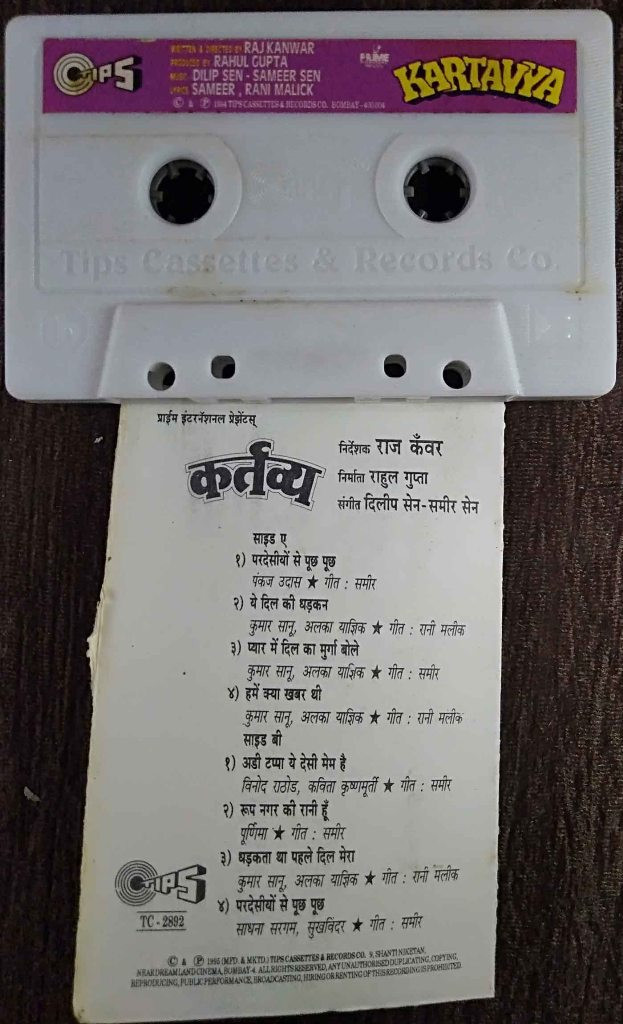 TIPS
WRITTEN & DIRECTED BY RAJ KANWAR
PRODUCED BY RAHUL GUPTA
MUSIC DILIP SEN - SAMEER SEN
LYRICS SAMEER, RANI MALICK
© & ℗ 1994 TIPS CASSETTES & RECORDS CO. BOMBAY - 400 004
PRIME
KARTAVYA
Tips Cassettes & Records Co.
प्राईम इंटरनॅशनल प्रेझेंटस्
कर्तव्य
निर्देशक राज कँवर
निर्माता राहुल गुप्ता
संगीत दिलीप सेन-समीर सेन
साइड ए
१) परदेसीयों से पूछ पूछ
पंकज उदास ★ गीत : समीर
२) ये दिल की धड़कन
कुमार सानू, अलका याज्ञिक ★ गीत : रानी मलीक
३) प्यार में दिल का मुर्गा बोले
कुमार सानू, अलका याज्ञिक ★ गीत : समीर
४) हमें क्या खबर थी
कुमार सानू, अलका याज्ञिक ★ गीत : रानी मलीक
साइड बी
१) अडी टप्पा ये देसी मेम है
विनोद राठोड, कविता कृष्णमूर्ती ★ गीत : समीर
२) रूप नगर की रानी हूँ
पूर्णिमा ★ गीत : समीर
३) धड़कता था पहले दिल मेरा
कुमार सानू, अलका याज्ञिक ★ गीत : रानी मलीक
४) परदेसीयों से पूछ पूछ
साधना सरगम, सुखविंदर ★ गीत : समीर
TIPS
TC - 2892
© & ℗ 1995 (MFD. & MKTD.) TIPS CASSETTES & RECORDS CO. 9, SHANTI NIKETAN,
NEAR DREAM LAND CINEMA, BOMBAY-4. ALL RIGHTS RESERVED, ANY UNAUTHORISED DUPLICATING, COPYING,
REPRODUCING, PUBLIC PERFORMANCE, BROADCASTING, HIRING OR RENTING OF THIS RECORDING IS PROHIBITED.